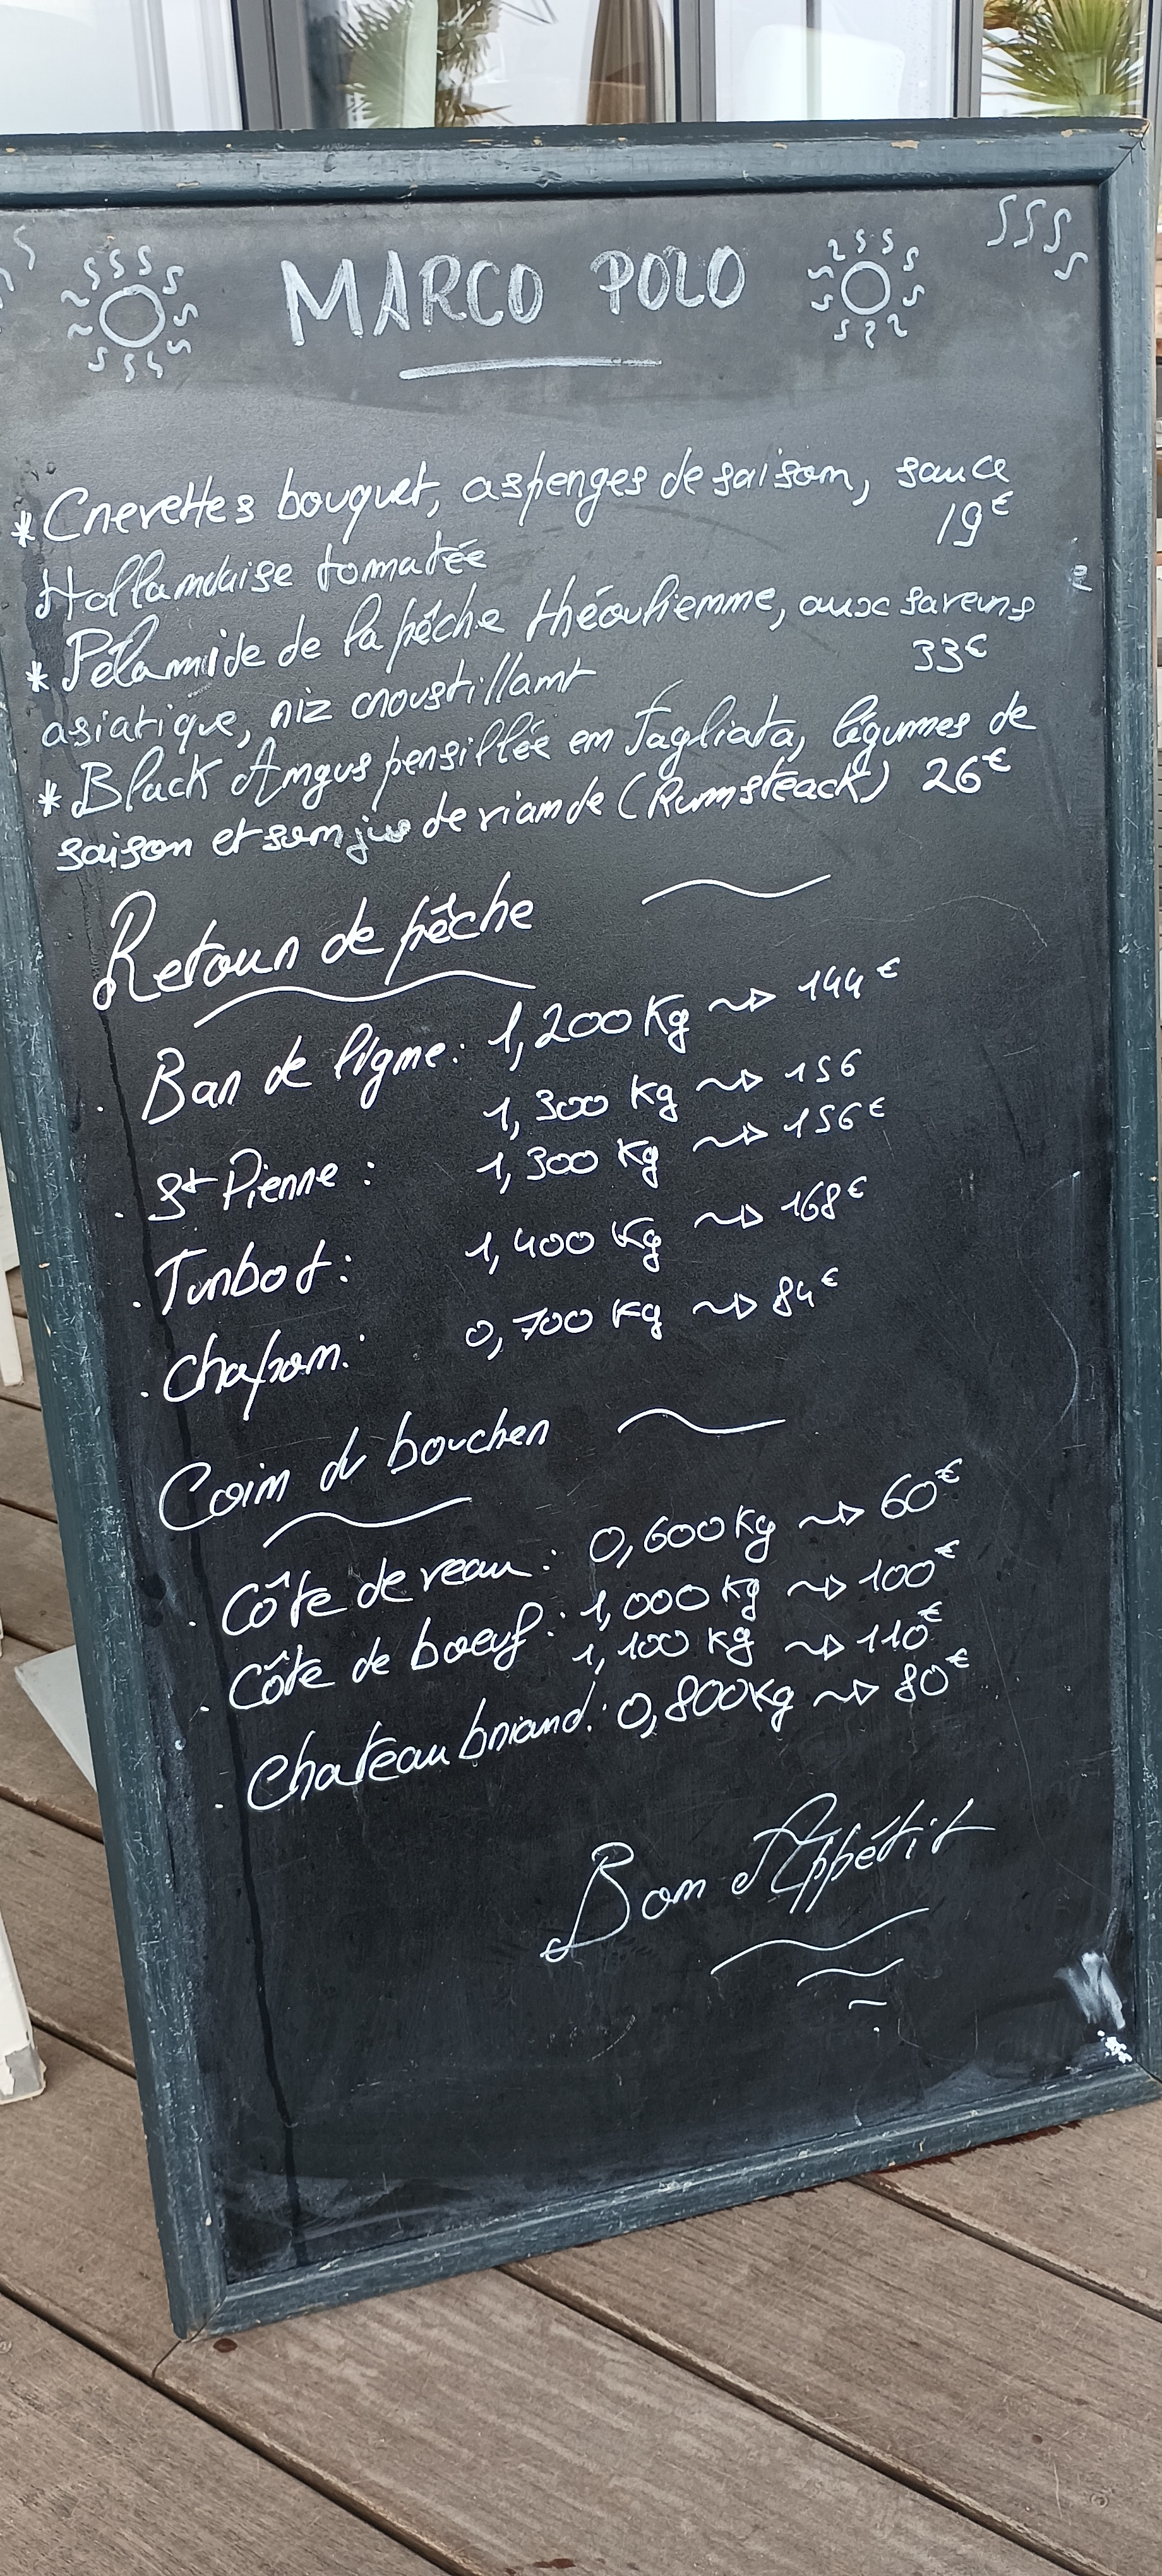 MARCO POLO
* Crevettes bouquet, asperges de saison, sauce
Hollandaise tomatée 19€
* Pélamide de la pêche théoulienne, aux saveurs
asiatique, riz croustillant 33€
* Black Angus persillée en Tagliata, légumes de
saison et son jus de viande (Rumsteack) 26€
Retour de pêche
. Bar de ligne : 1,200 Kg → 144€
1,300 Kg → 156
. St Pierre : 1,300 Kg → 156€
. Turbot : 1,400 Kg → 168€
. Chapon : 0,700 Kg → 84€
Coin du boucher
. Côte de veau : 0,600 Kg → 60€
. Côte de boeuf : 1,000 Kg → 100€
1,100 Kg → 110€
. Chateau briand : 0,800 Kg → 80€
Bon Appétit